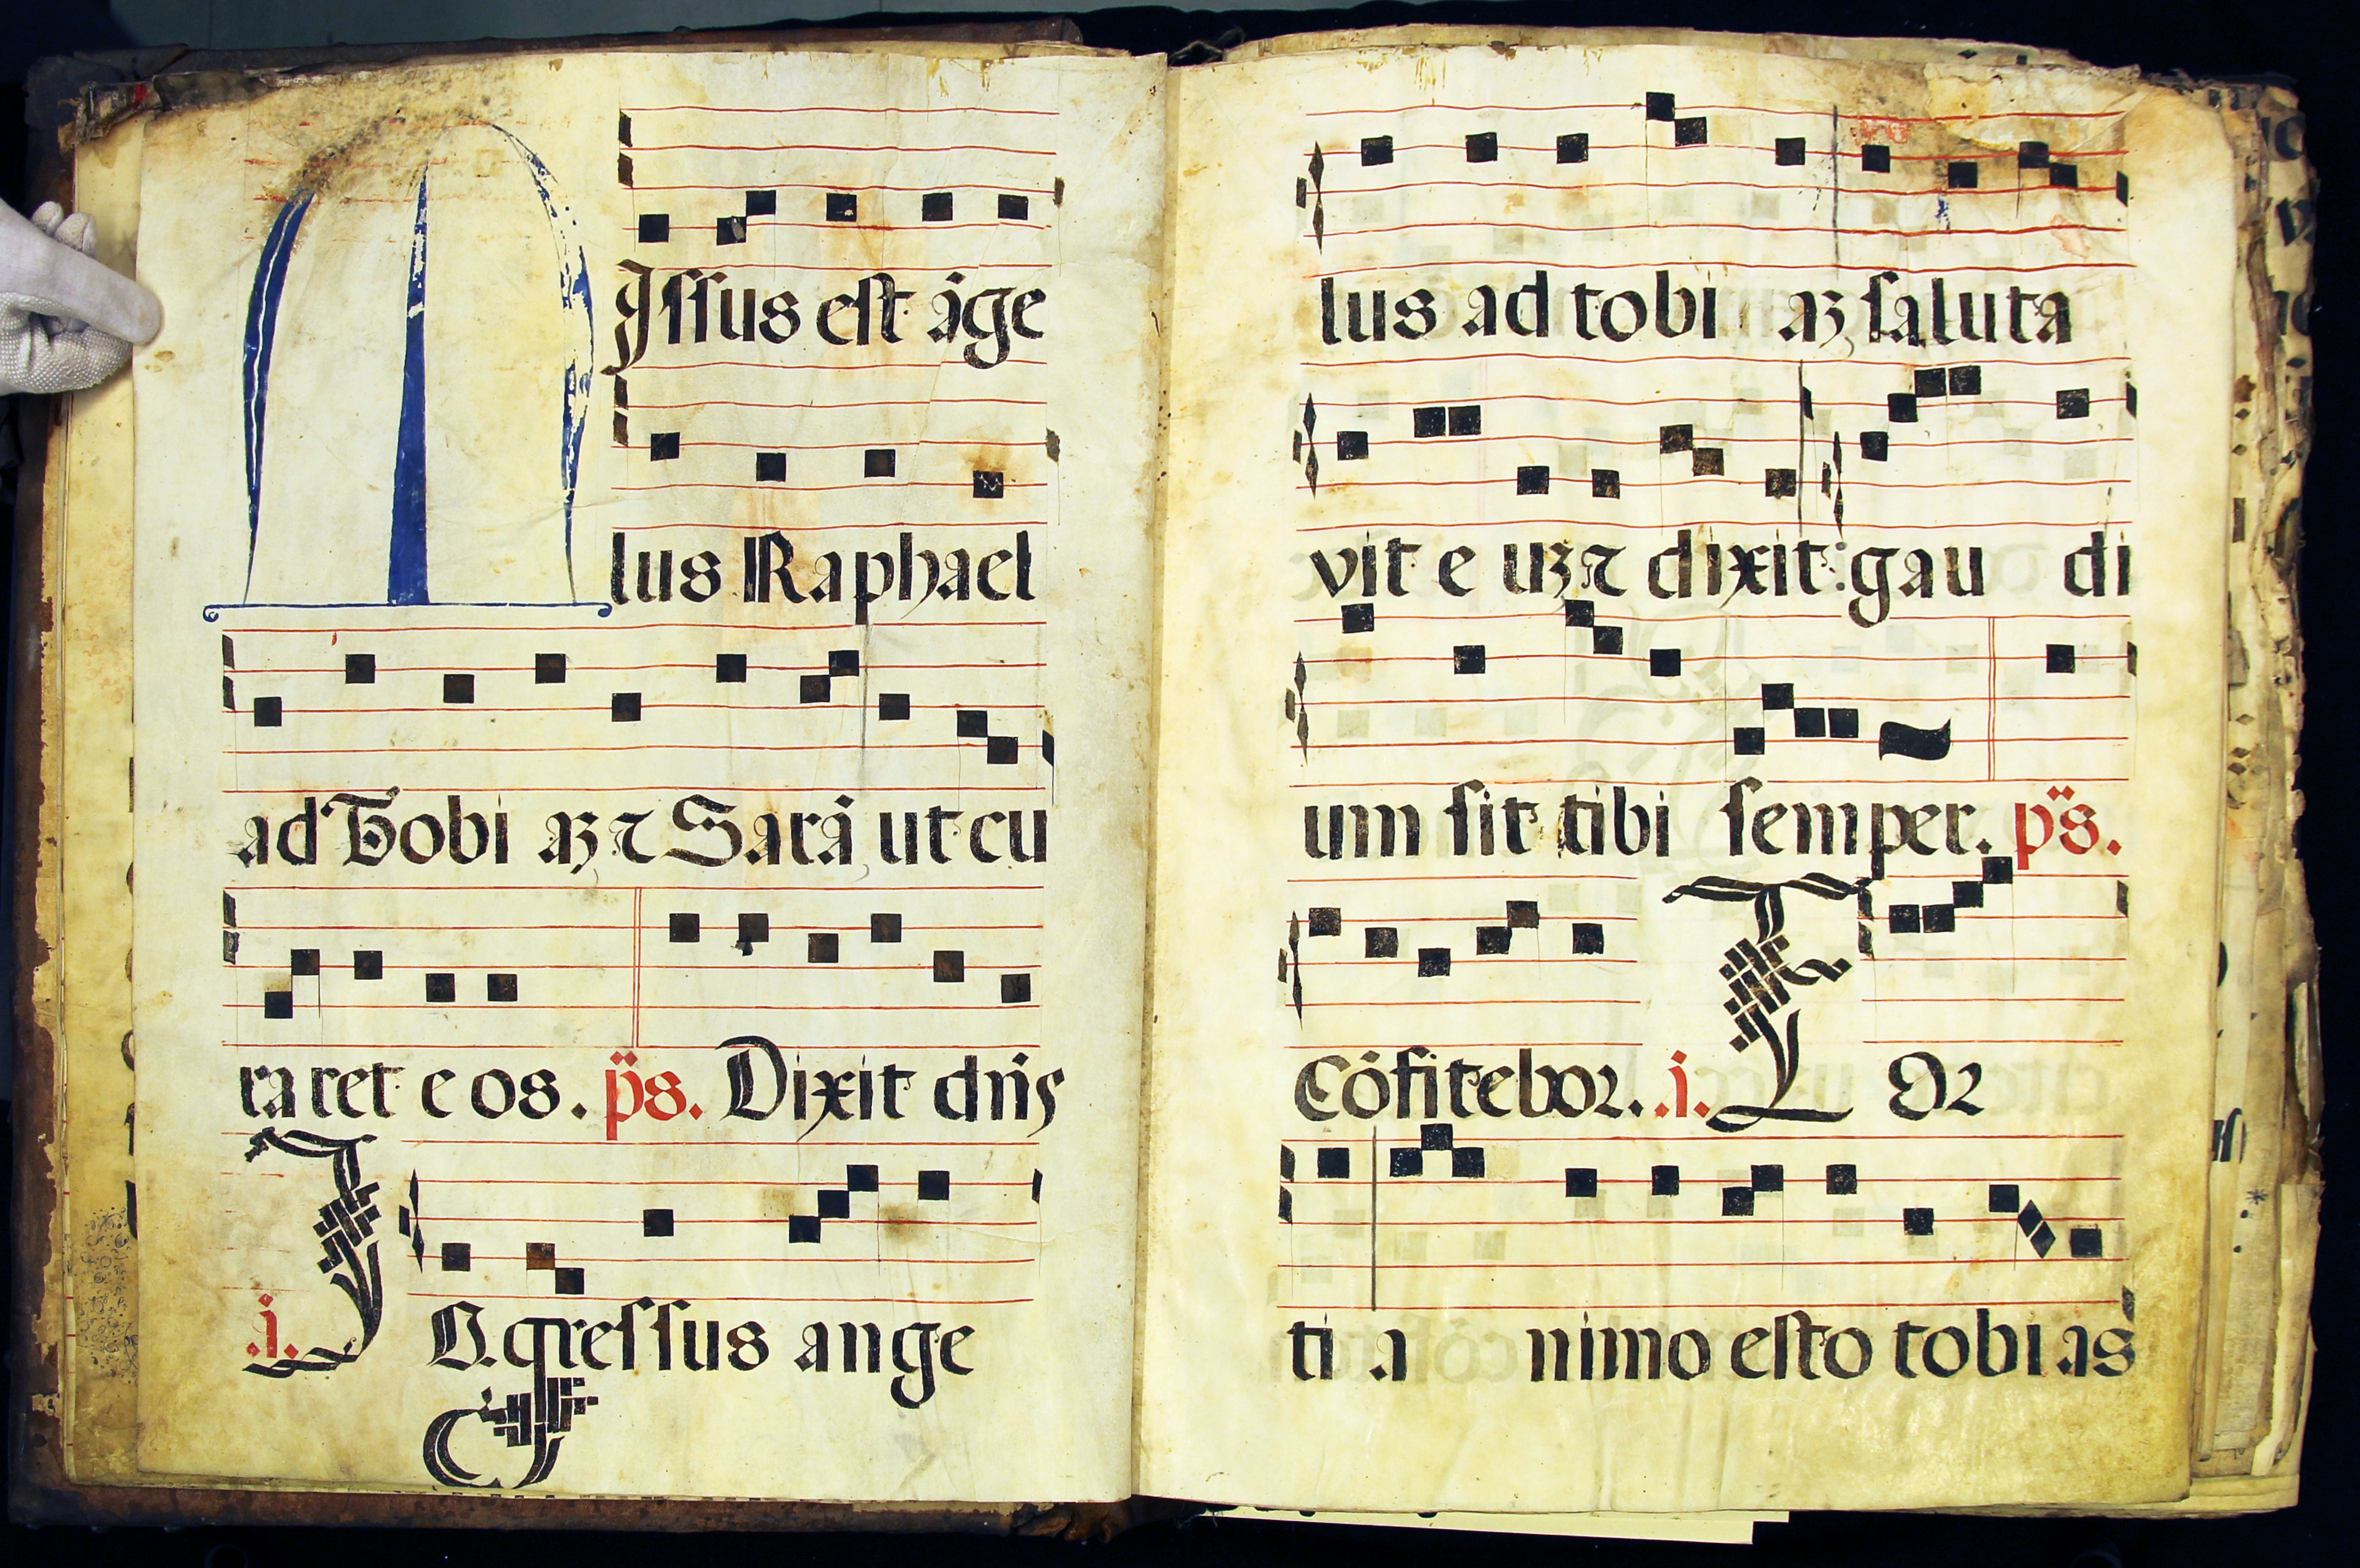 MIſſus eſt āge
lus Raphael
ad Tobi aꝫ ⁊ Sarā ut cu
ra ret e os. p̈s. Dixit dn̄s
.i. IN.greſſus ange
lus ad tobi aꝫ ſaluta
vit e uꝫ ⁊ dixit: gau di
um ſit tibi ſemper. p̈s.
Cōfitebor. .i. FOꝛ
ti a nimo eſto tobi as